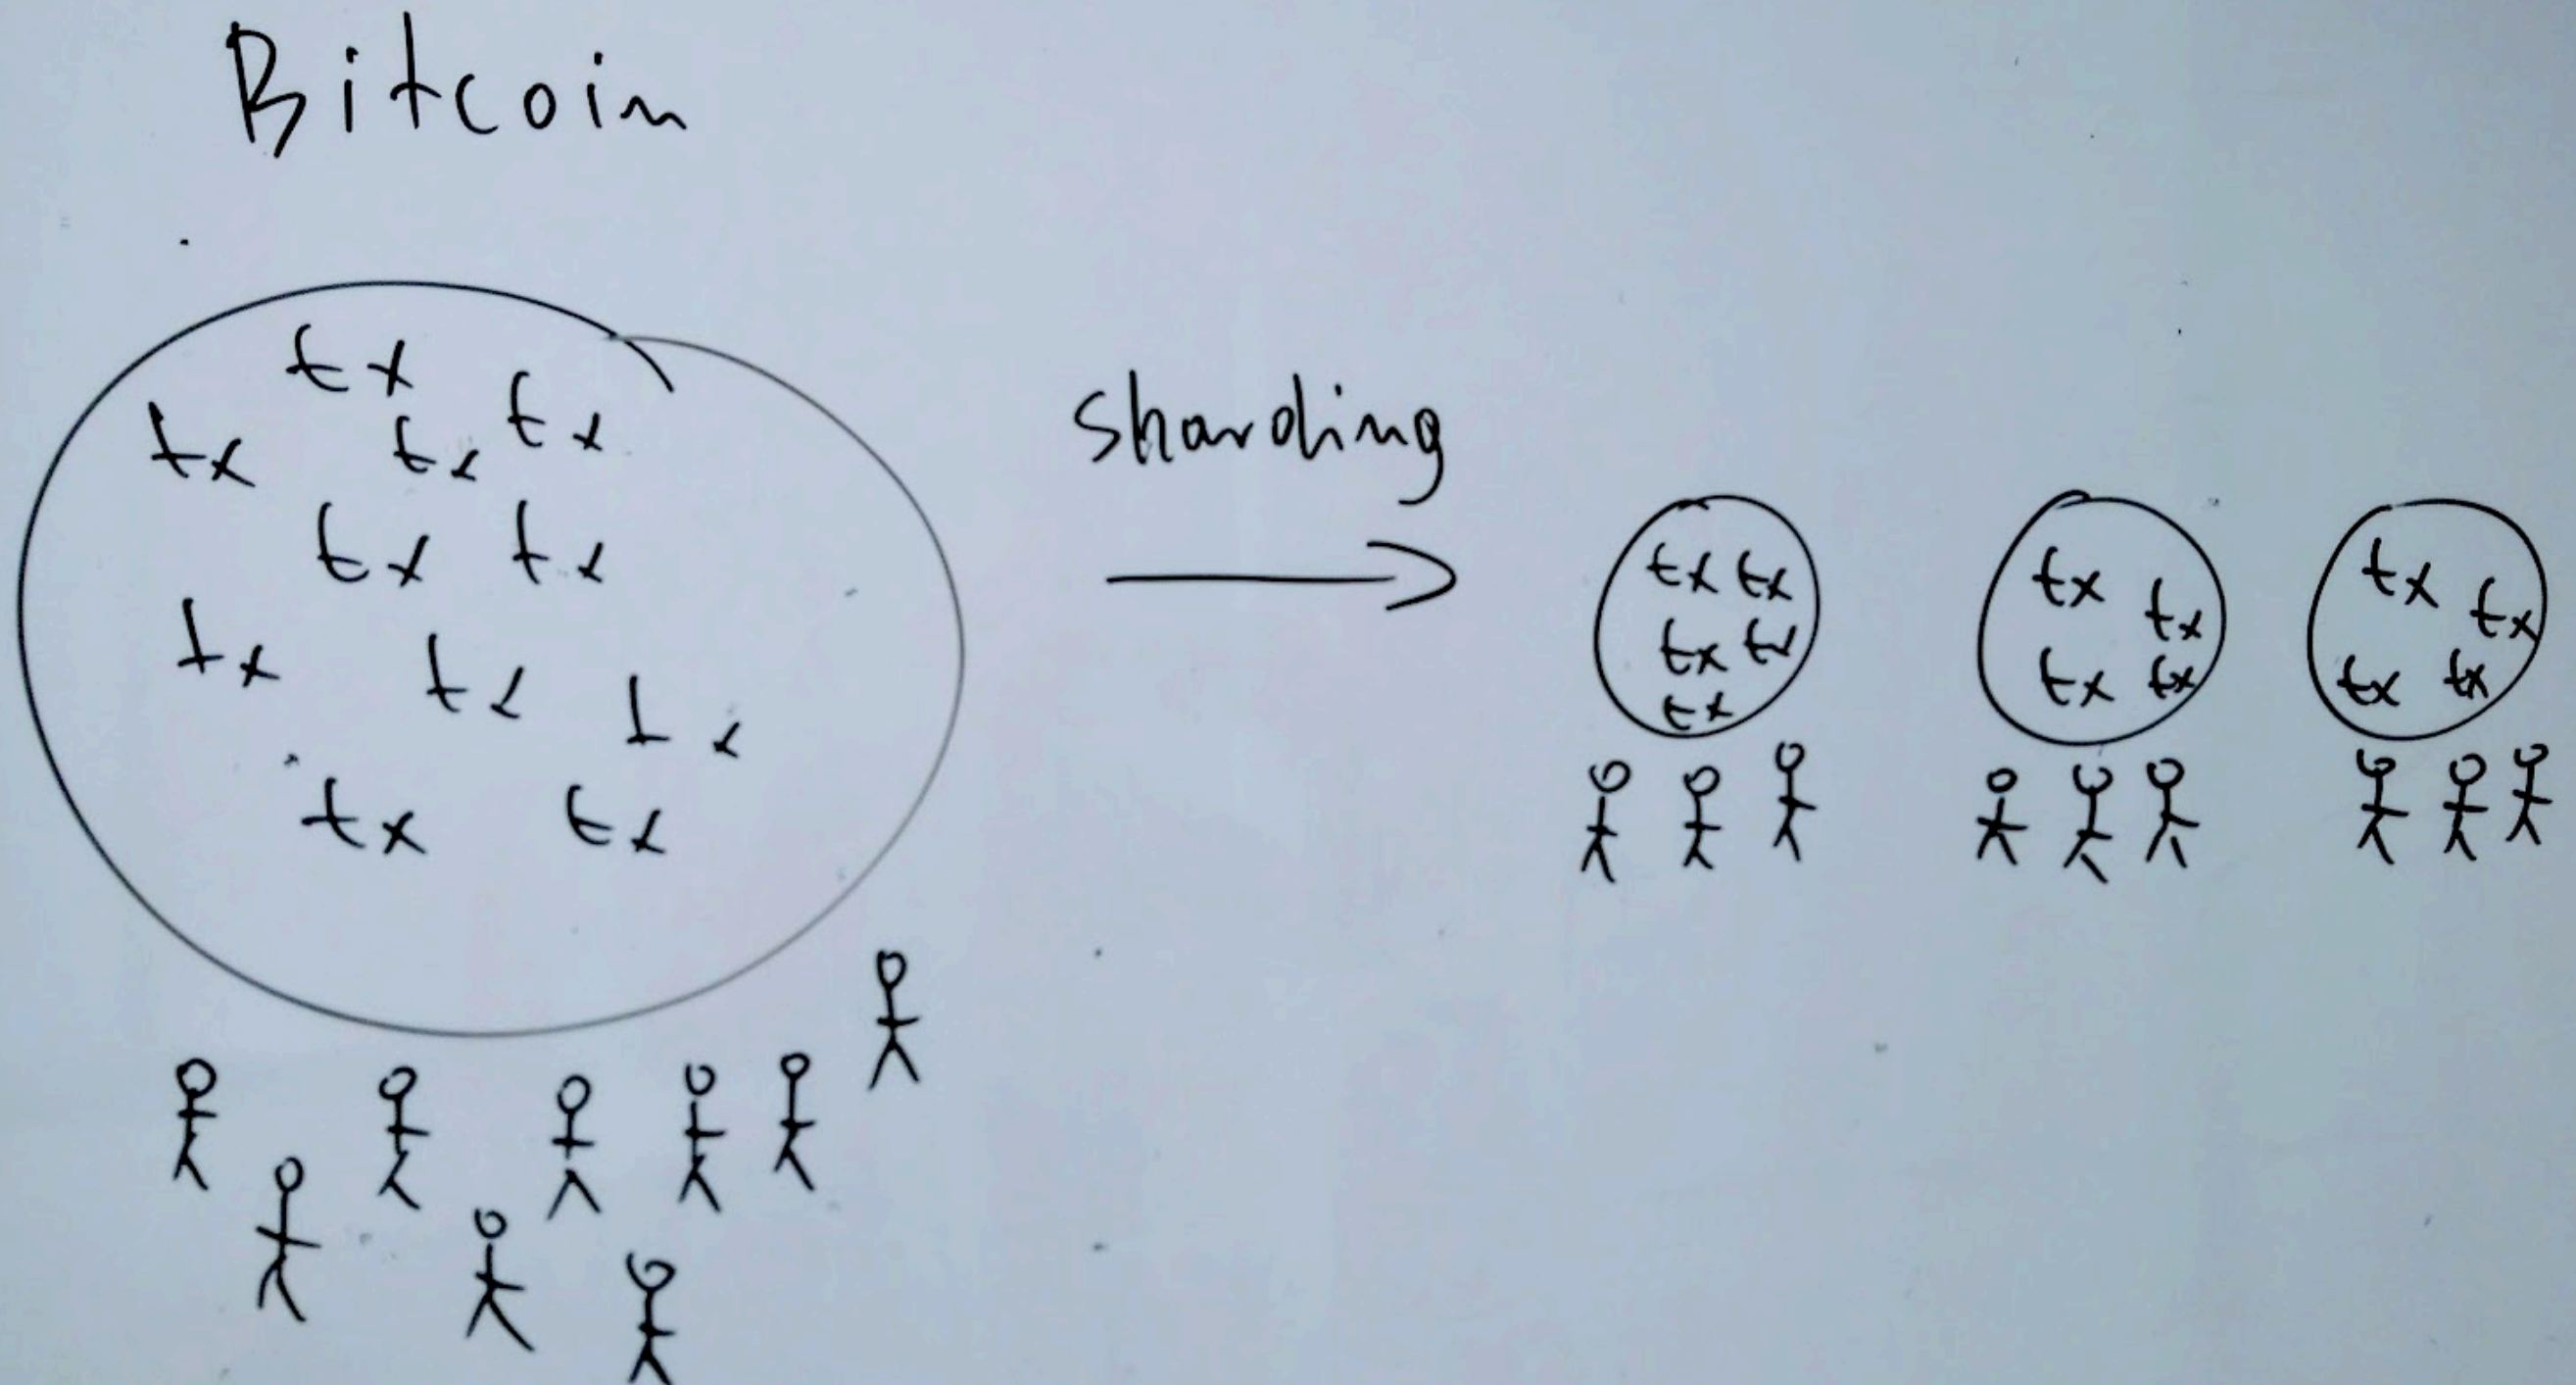 Bitcoin
tx
tx tx tx
tx tx
tx tx tx
tx tx
sharding
tx tx
tx tx
tx
tx tx
tx tx
tx tx
tx tx